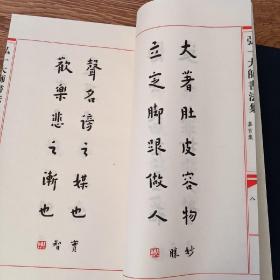 弘一大師書法集
嘉言集
八
大著肚皮容物
立定脚跟做人
勝妙
聲名謗之媒也
歡樂悲之漸也
智實
弘一大師書法